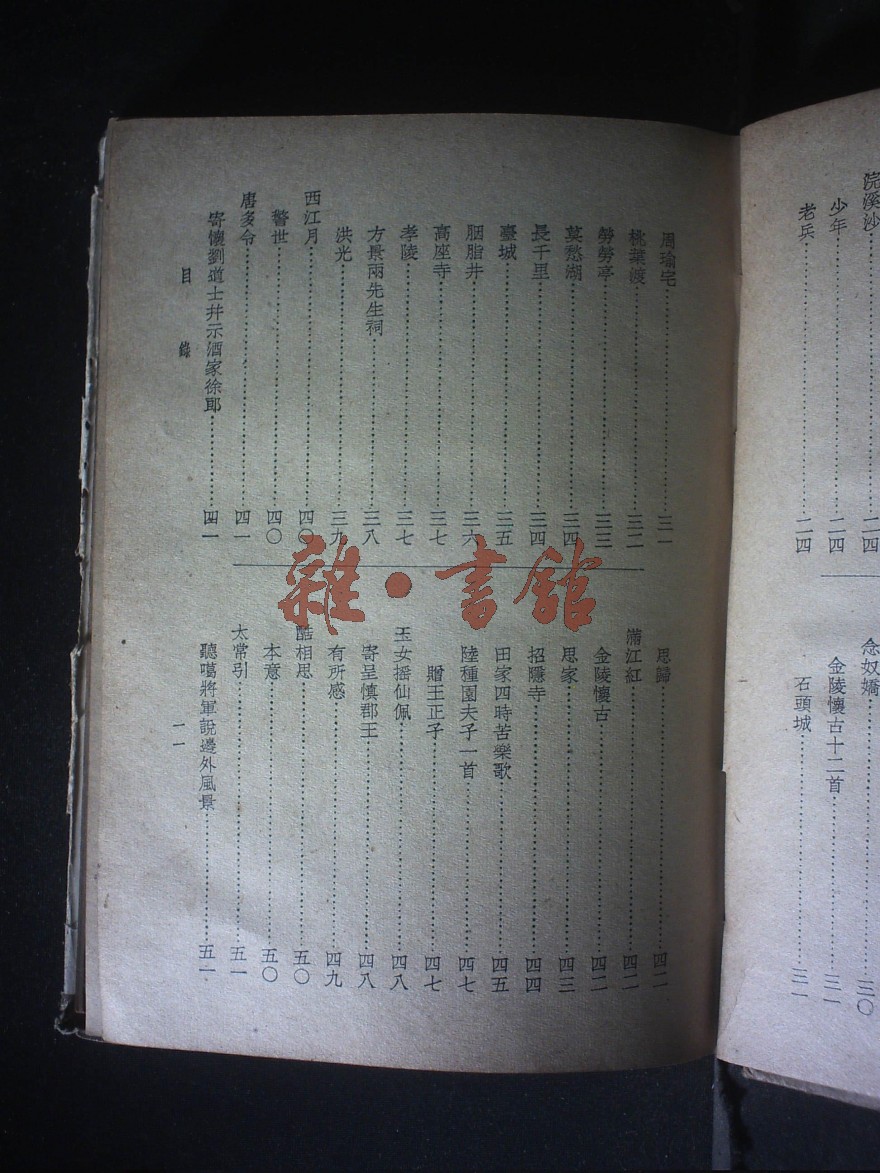 浣溪沙……二四
少年……二四
老兵……二四
念奴嬌……三〇
金陵懷古十二首……三一
石頭城……三一
周瑜宅……三一
桃葉渡……三二
勞勞亭……三三
莫愁湖……三四
長千里……三四
臺城……三五
胭脂井……三六
高座寺……三七
孝陵……三七
方景兩先生祠……三八
洪光……三九
西江月……四〇
警世……四〇
唐多令……四一
寄懷劉道士幷示酒家徐郎……四一
思歸……四二
滿江紅……四二
金陵懷古……四二
思家……四三
招隱寺……四四
田家四時苦樂歌……四五
陸種園夫子一首……四七
贈王正子……四七
玉女搖仙佩……四八
寄呈慎郡王……四八
有所感……四九
酷相思……五〇
本意……五〇
太常引……五一
聽噶將軍說邊外風景……五一
目錄
一一
雜·書館